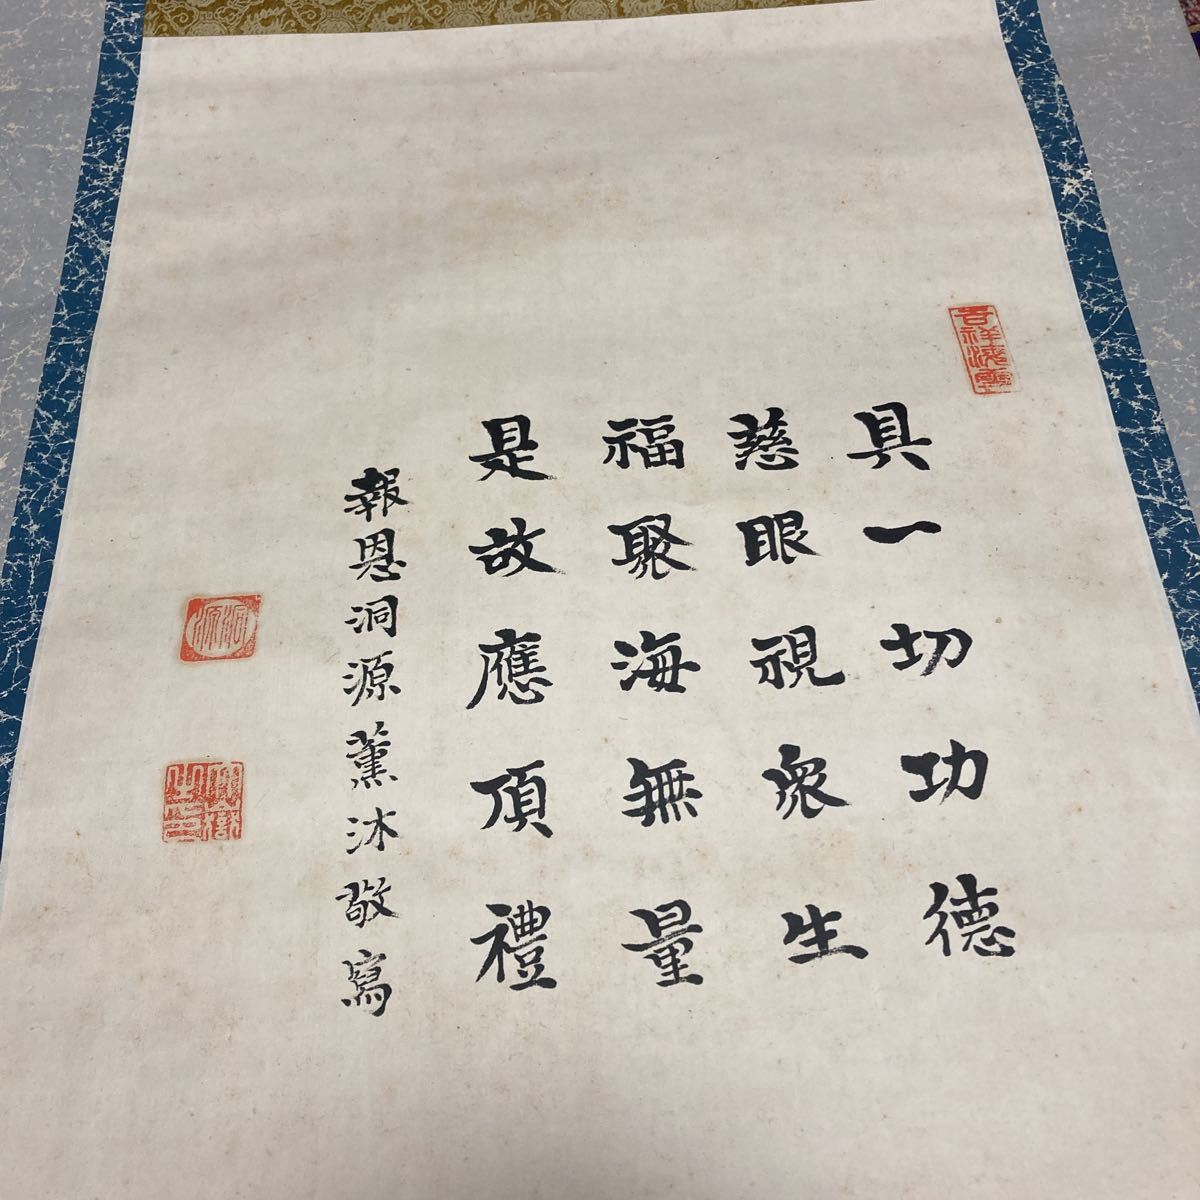 具一切功德
慈眼視衆生
福聚海無量
是故應頂禮
報恩洞源薰沐敬寫
洞源